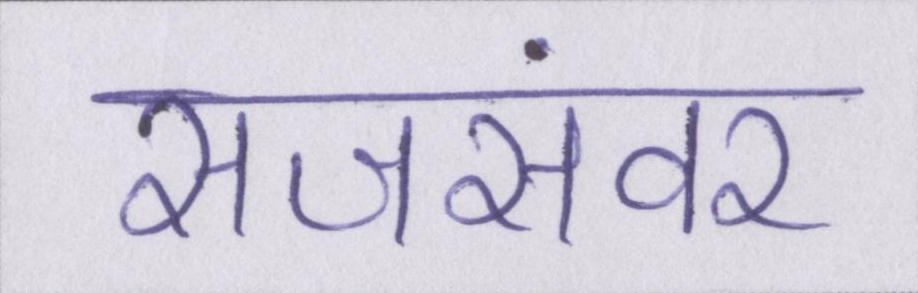 सजसंवर